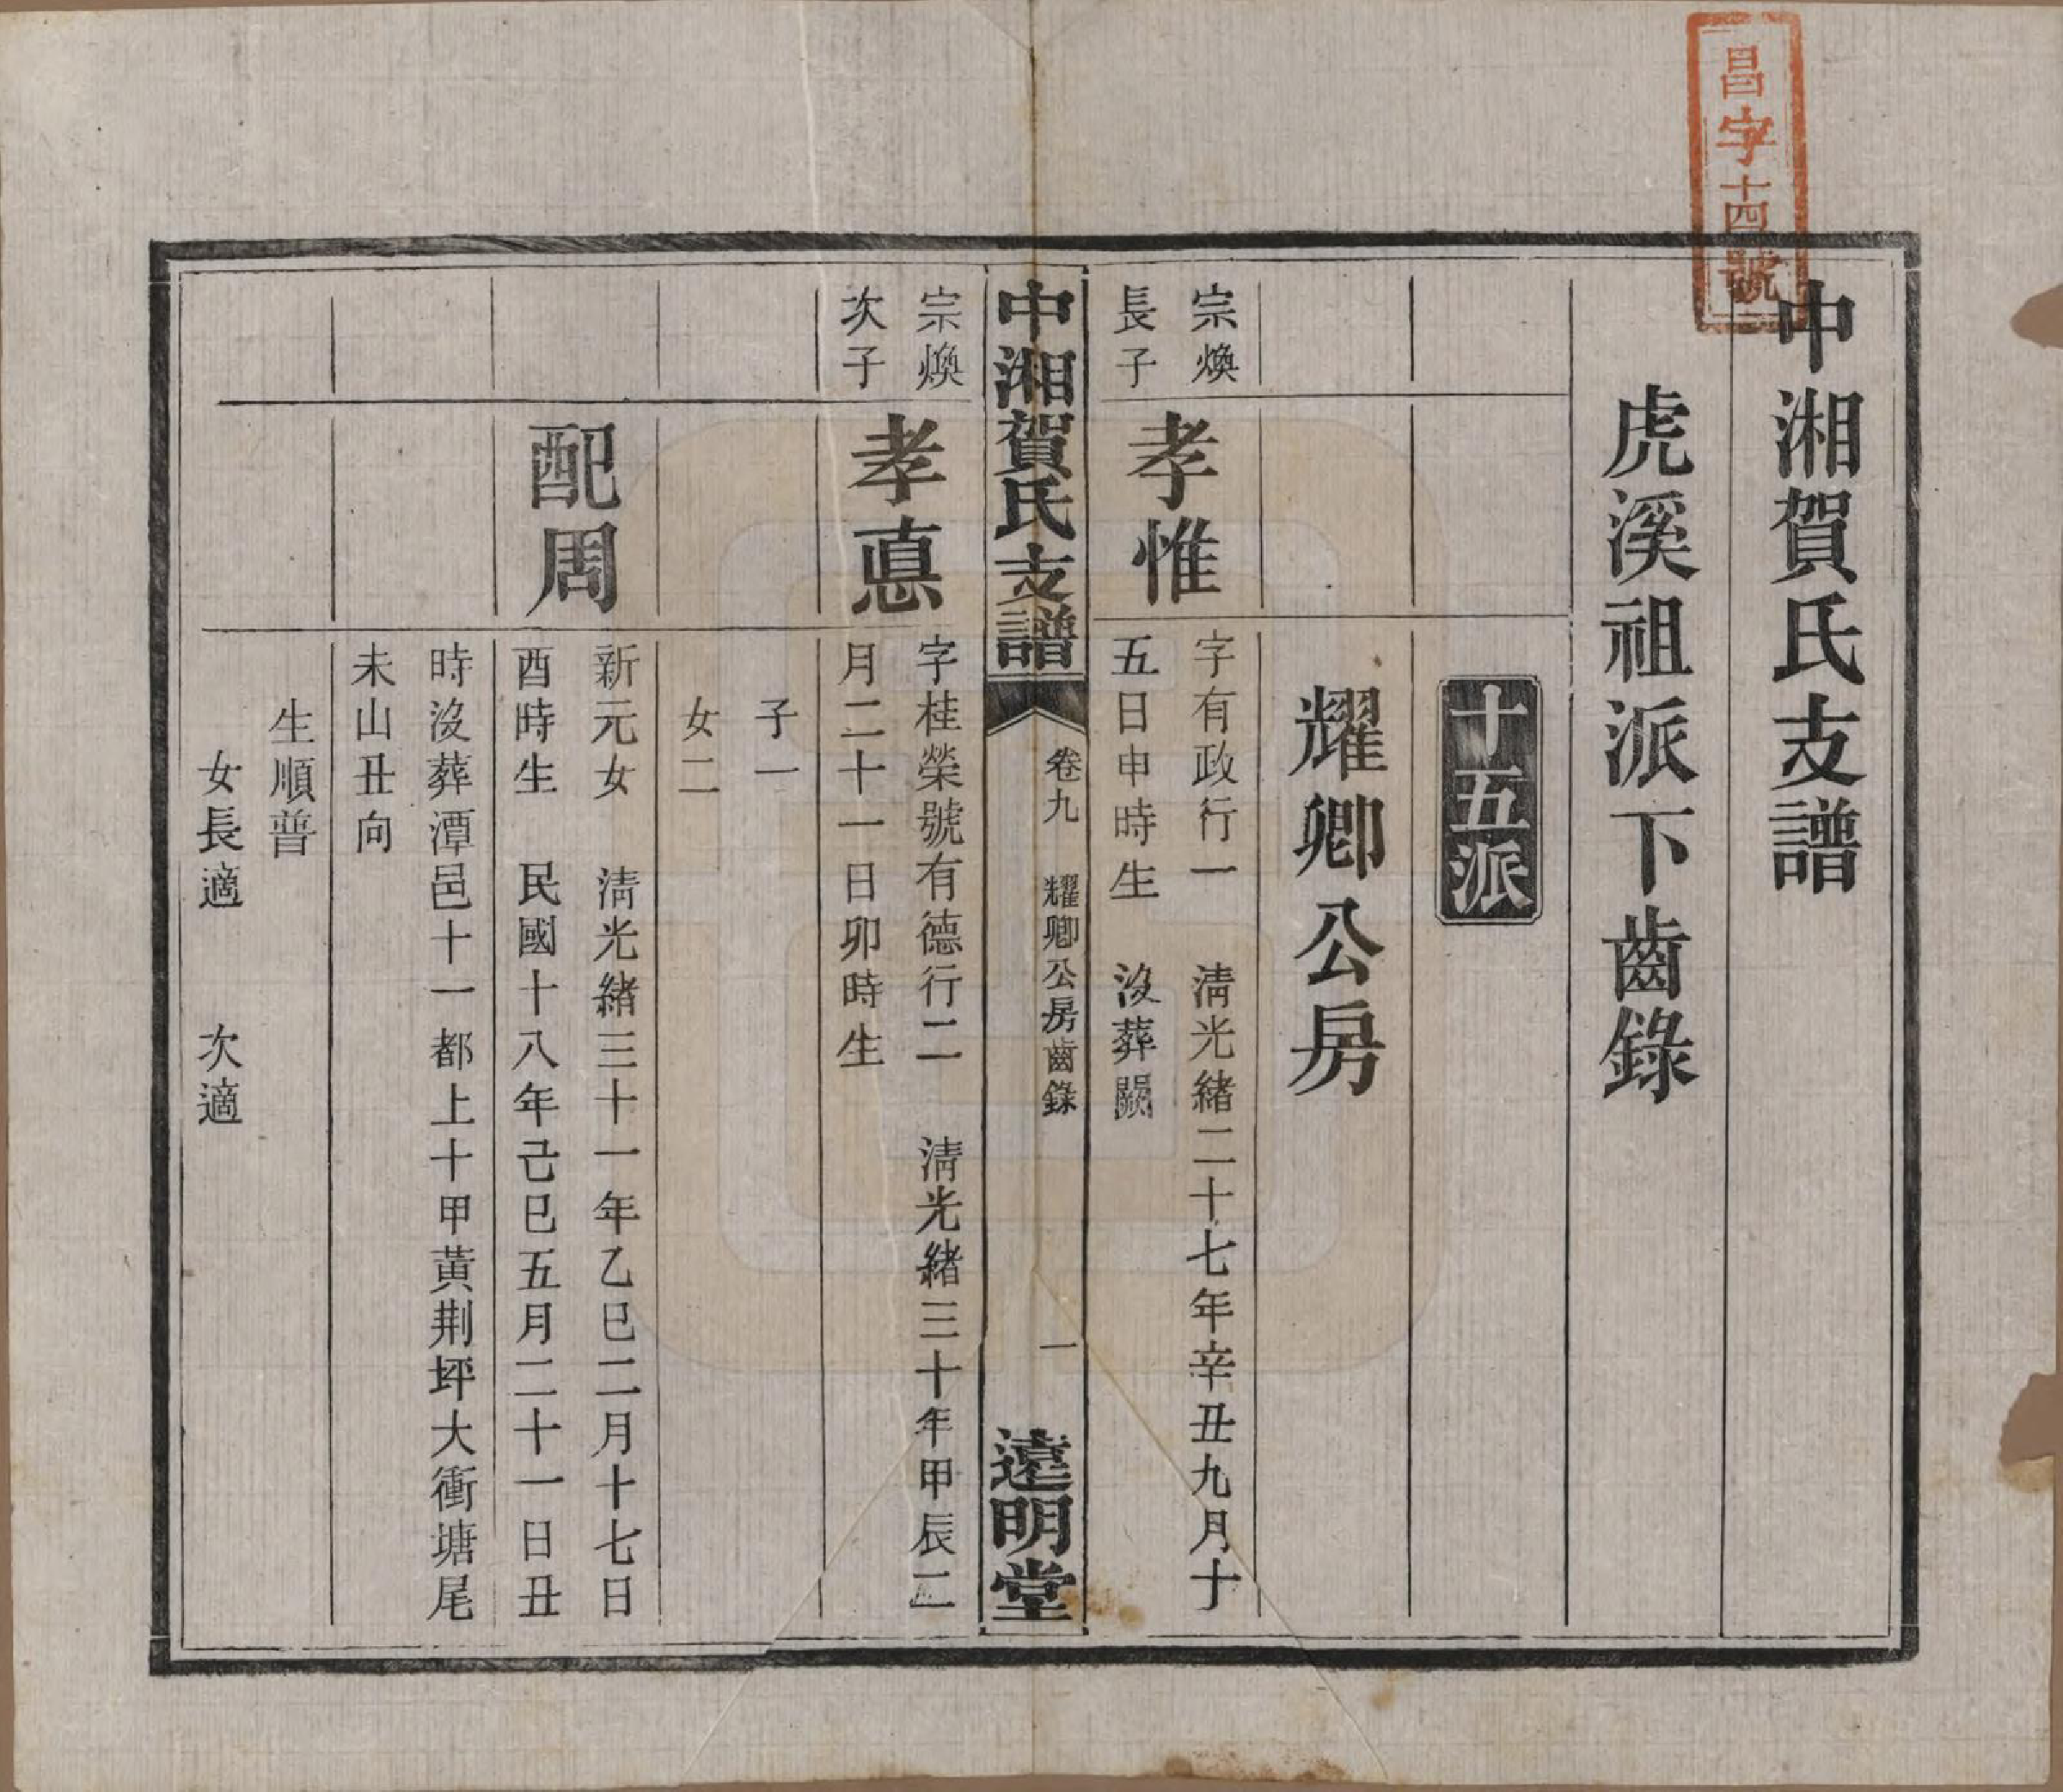 昌字十四號
中湘賀氏支譜
虎溪祖派下齒錄
十五派
耀卿公房
宗煥
長子
孝惟
字有政行一　清光緒二十七年辛丑九月十
五日申時生　沒葬闕
中湘賀氏支譜
卷九　耀卿公房齒錄
一
遠明堂
宗煥
次子
孝悳
字桂榮號有德行二　清光緒三十年甲辰二
月二十一日卯時生
子一
女二
配周
新元女　清光緒三十一年乙巳二月十七日
酉時生　民國十八年己巳五月二十一日丑
時沒葬潭邑十一都上十甲黃荆坪大衝塘尾
未山丑向
生順普
女長適　次適